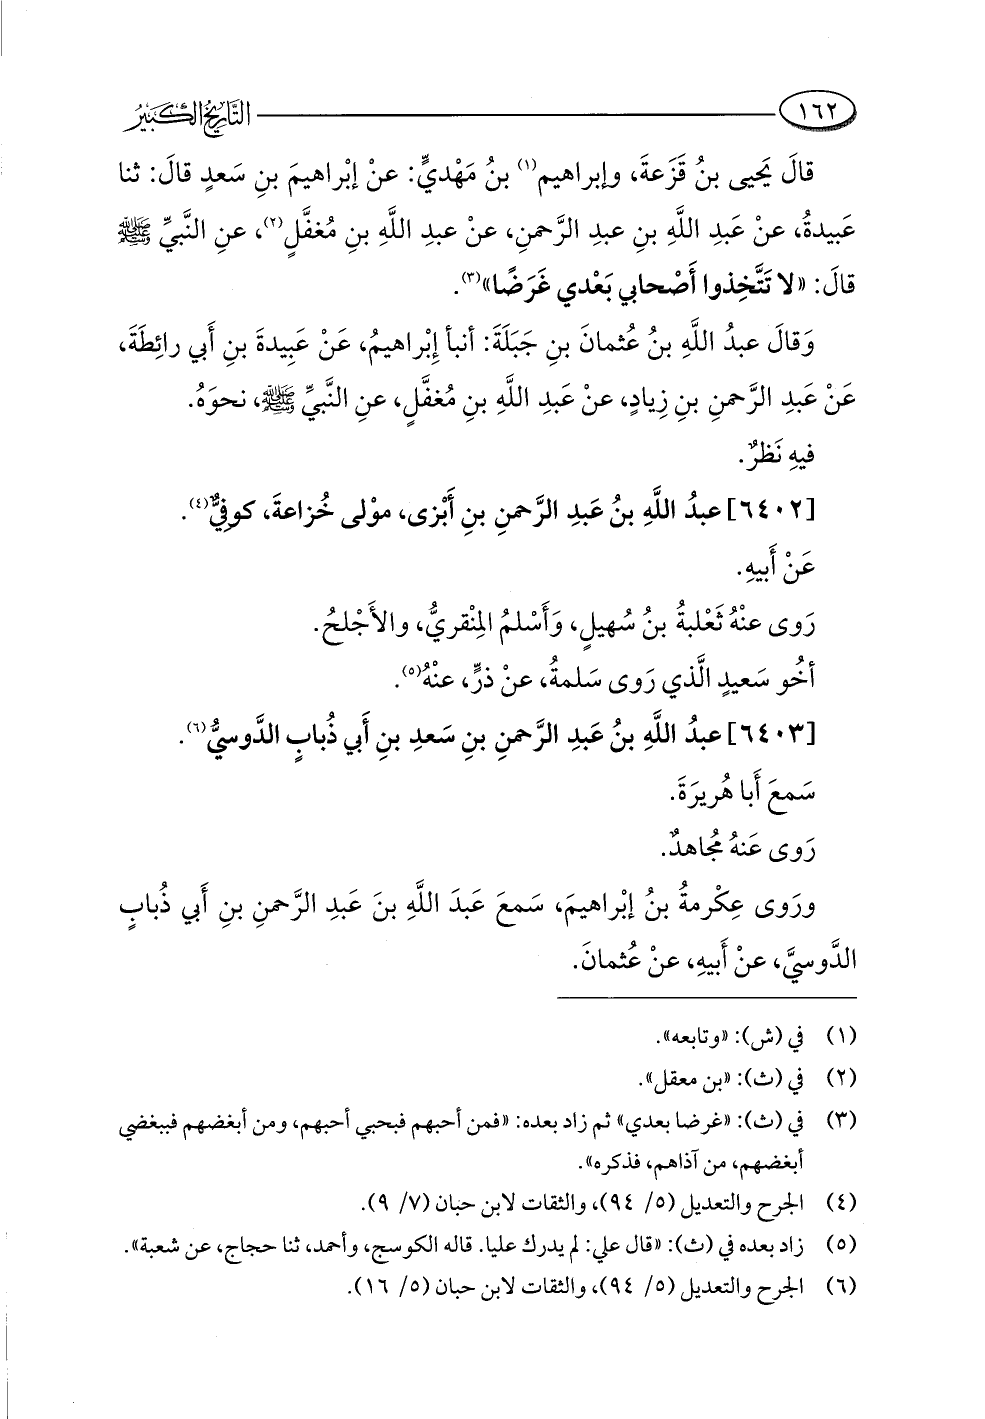 ١٦٢
التَّاريخُ الكَبيرُ
قالَ يَحيى بنُ قَزَعةَ، وإبراهيم(١) بنُ مَهْديٍّ: عنْ إبْراهيمَ بنِ سَعدٍ قالَ: ثنا
عَبيدةُ، عنْ عَبدِ اللَّهِ بنِ عبدِ الرَّحمنِ، عنْ عبدِ اللهِ بنِ مُغفَّلٍ(٢)، عنِ النَّبيِّ ﷺ
قالَ: «لا تَتَّخِذوا أَصْحابي بَعْدي غَرَضًا»(٣).
وَقالَ عبدُ اللَّهِ بنُ عُثمانَ بنِ جَبَلَةَ: أنبأ إبْراهيمُ، عَنْ عَبِيدةَ بنِ أَبي رائِطَةَ،
عَنْ عَبدِ الرَّحمنِ بنِ زِيادٍ، عنْ عَبدِ اللَّهِ بنِ مُغفَّلٍ، عنِ النَّبيِّ ﷺ، نحوَهُ.
فيهِ نَظرٌ.
[٦٤٠٢] عبدُ اللَّهِ بنُ عَبدِ الرَّحمنِ بنِ أَبْزى، موْلى خُزاعةَ، كوفيٌّ(٤).
عَنْ أَبيهِ.
رَوى عنْهُ ثَعْلبةُ بنُ سُهيلٍ، وَأَسْلمُ المِنْقريُّ، والأَجْلحُ.
أخُو سَعيدٍ الَّذي رَوى سَلمةُ، عنْ ذرٍّ، عنْهُ(٥).
[٦٤٠٣] عبدُ اللَّهِ بنُ عَبدِ الرَّحمنِ بنِ سَعدِ بنِ أَبي ذُبابٍ الدَّوسيُّ(٦).
سَمعَ أَبا هُريرَةَ.
رَوى عَنهُ مُجاهدٌ.
ورَوى عِكْرمةُ بنُ إبْراهيمَ، سَمعَ عَبدَ اللَّهِ بنَ عَبدِ الرَّحمنِ بنِ أَبي ذُبابٍ
الدَّوسيَّ، عنْ أَبيهِ، عنْ عُثمانَ.
(١) في (ش): «وتابعه».
(٢) في (ث): «بن معقل».
(٣) في (ث): «غرضا بعدي» ثم زاد بعده: «فمن أحبهم فبحبي أحبهم، ومن أبغضهم فببغضي
أبغضهم، من آذاهم، فذكره».
(٤) الجرح والتعديل (٥/ ٩٤)، والثقات لابن حبان (٧/ ٩).
(٥) زاد بعده في (ث): «قال علي: لم يدرك عليا. قاله الكوسج، وأحمد، ثنا حجاج، عن شعبة».
(٦) الجرح والتعديل (٥/ ٩٤)، والثقات لابن حبان (٥/ ١٦).